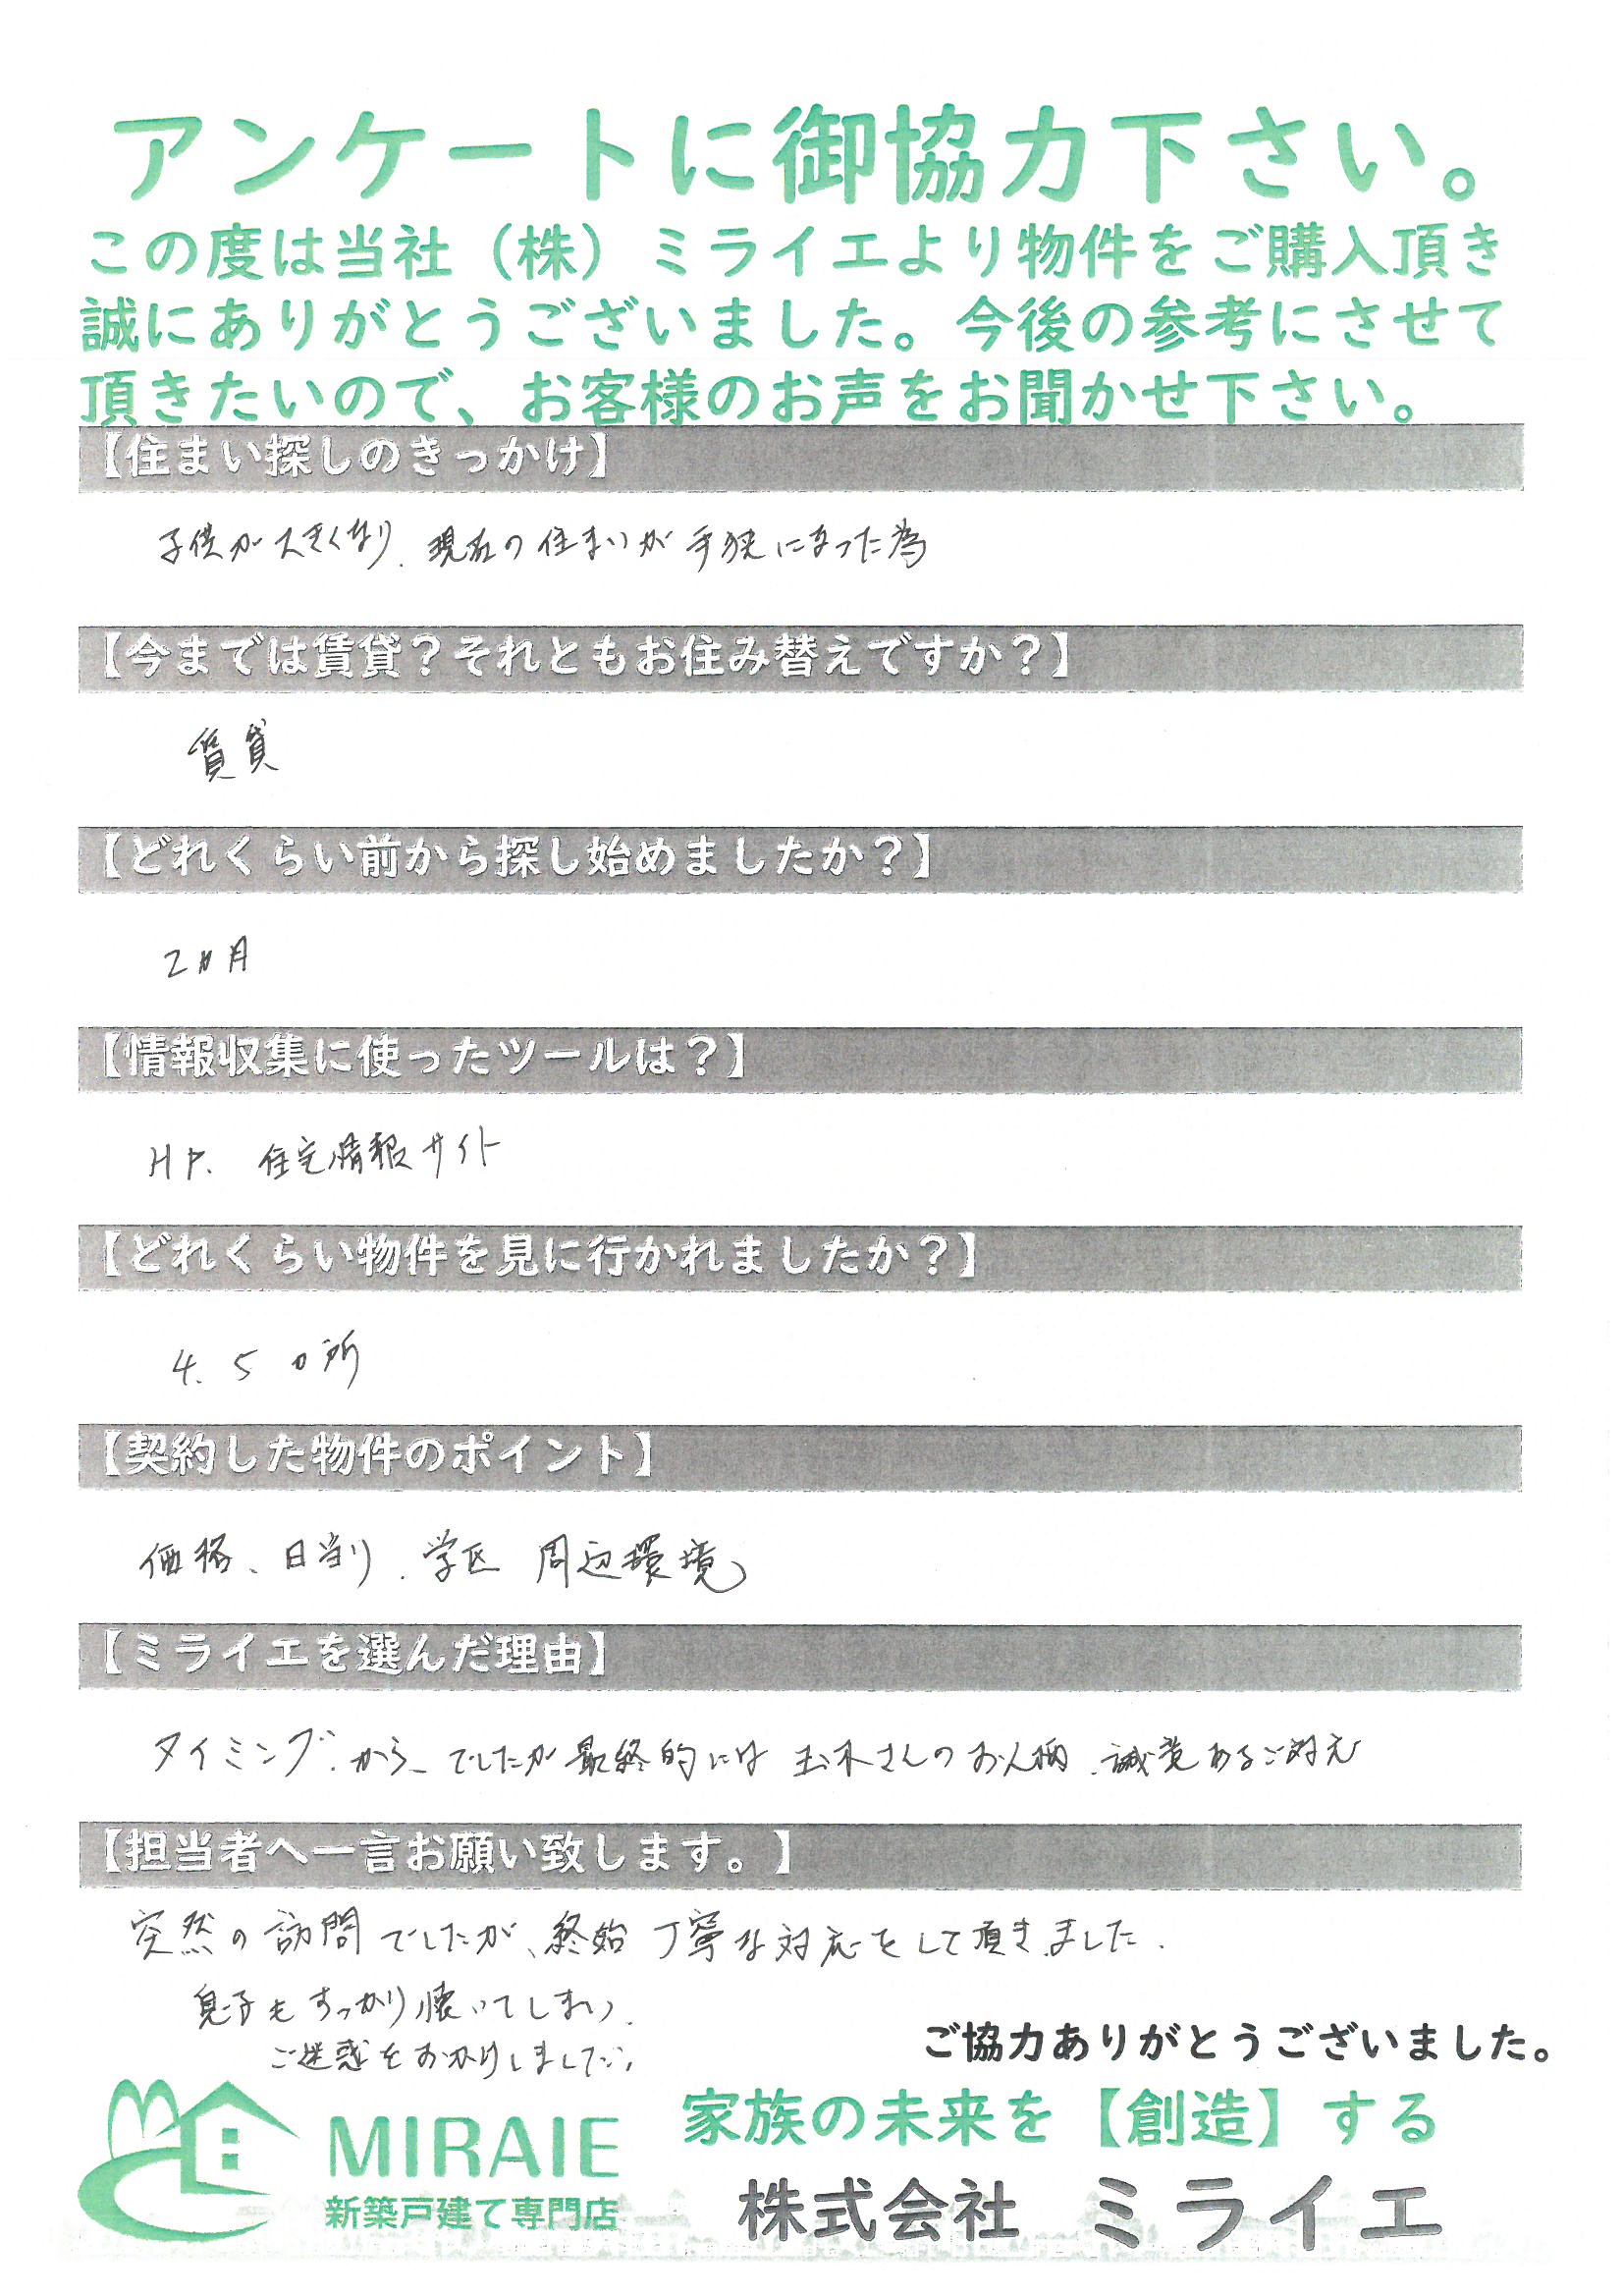 アンケートに御協力下さい。
この度は当社（株）ミライエより物件をご購入頂き
誠にありがとうございました。今後の参考にさせて
頂きたいので、お客様のお声をお聞かせ下さい。
【住まい探しのきっかけ】
子供が大きくなり、現在の住まいが手狭になった為
【今までは賃貸？それともお住み替えですか？】
賃貸
【どれくらい前から探し始めましたか？】
2ヵ月
【情報収集に使ったツールは？】
HP、住宅情報サイト
【どれくらい物件を見に行かれましたか？】
4、5カ所
【契約した物件のポイント】
価格、日当り、学区 周辺環境
【ミライエを選んだ理由】
タイミングから、でしたが最終的には 玉木さんのお人柄、誠意あるご対応
【担当者へ一言お願い致します。】
突然の訪問でしたが、終始丁寧な対応をして頂きました。
息子もすっかり懐いてしまい、
ご迷惑をおかけしました。
ご協力ありがとうございました。
MIRAIE
新築戸建て専門店
家族の未来を【創造】する
株式会社 ミライエ